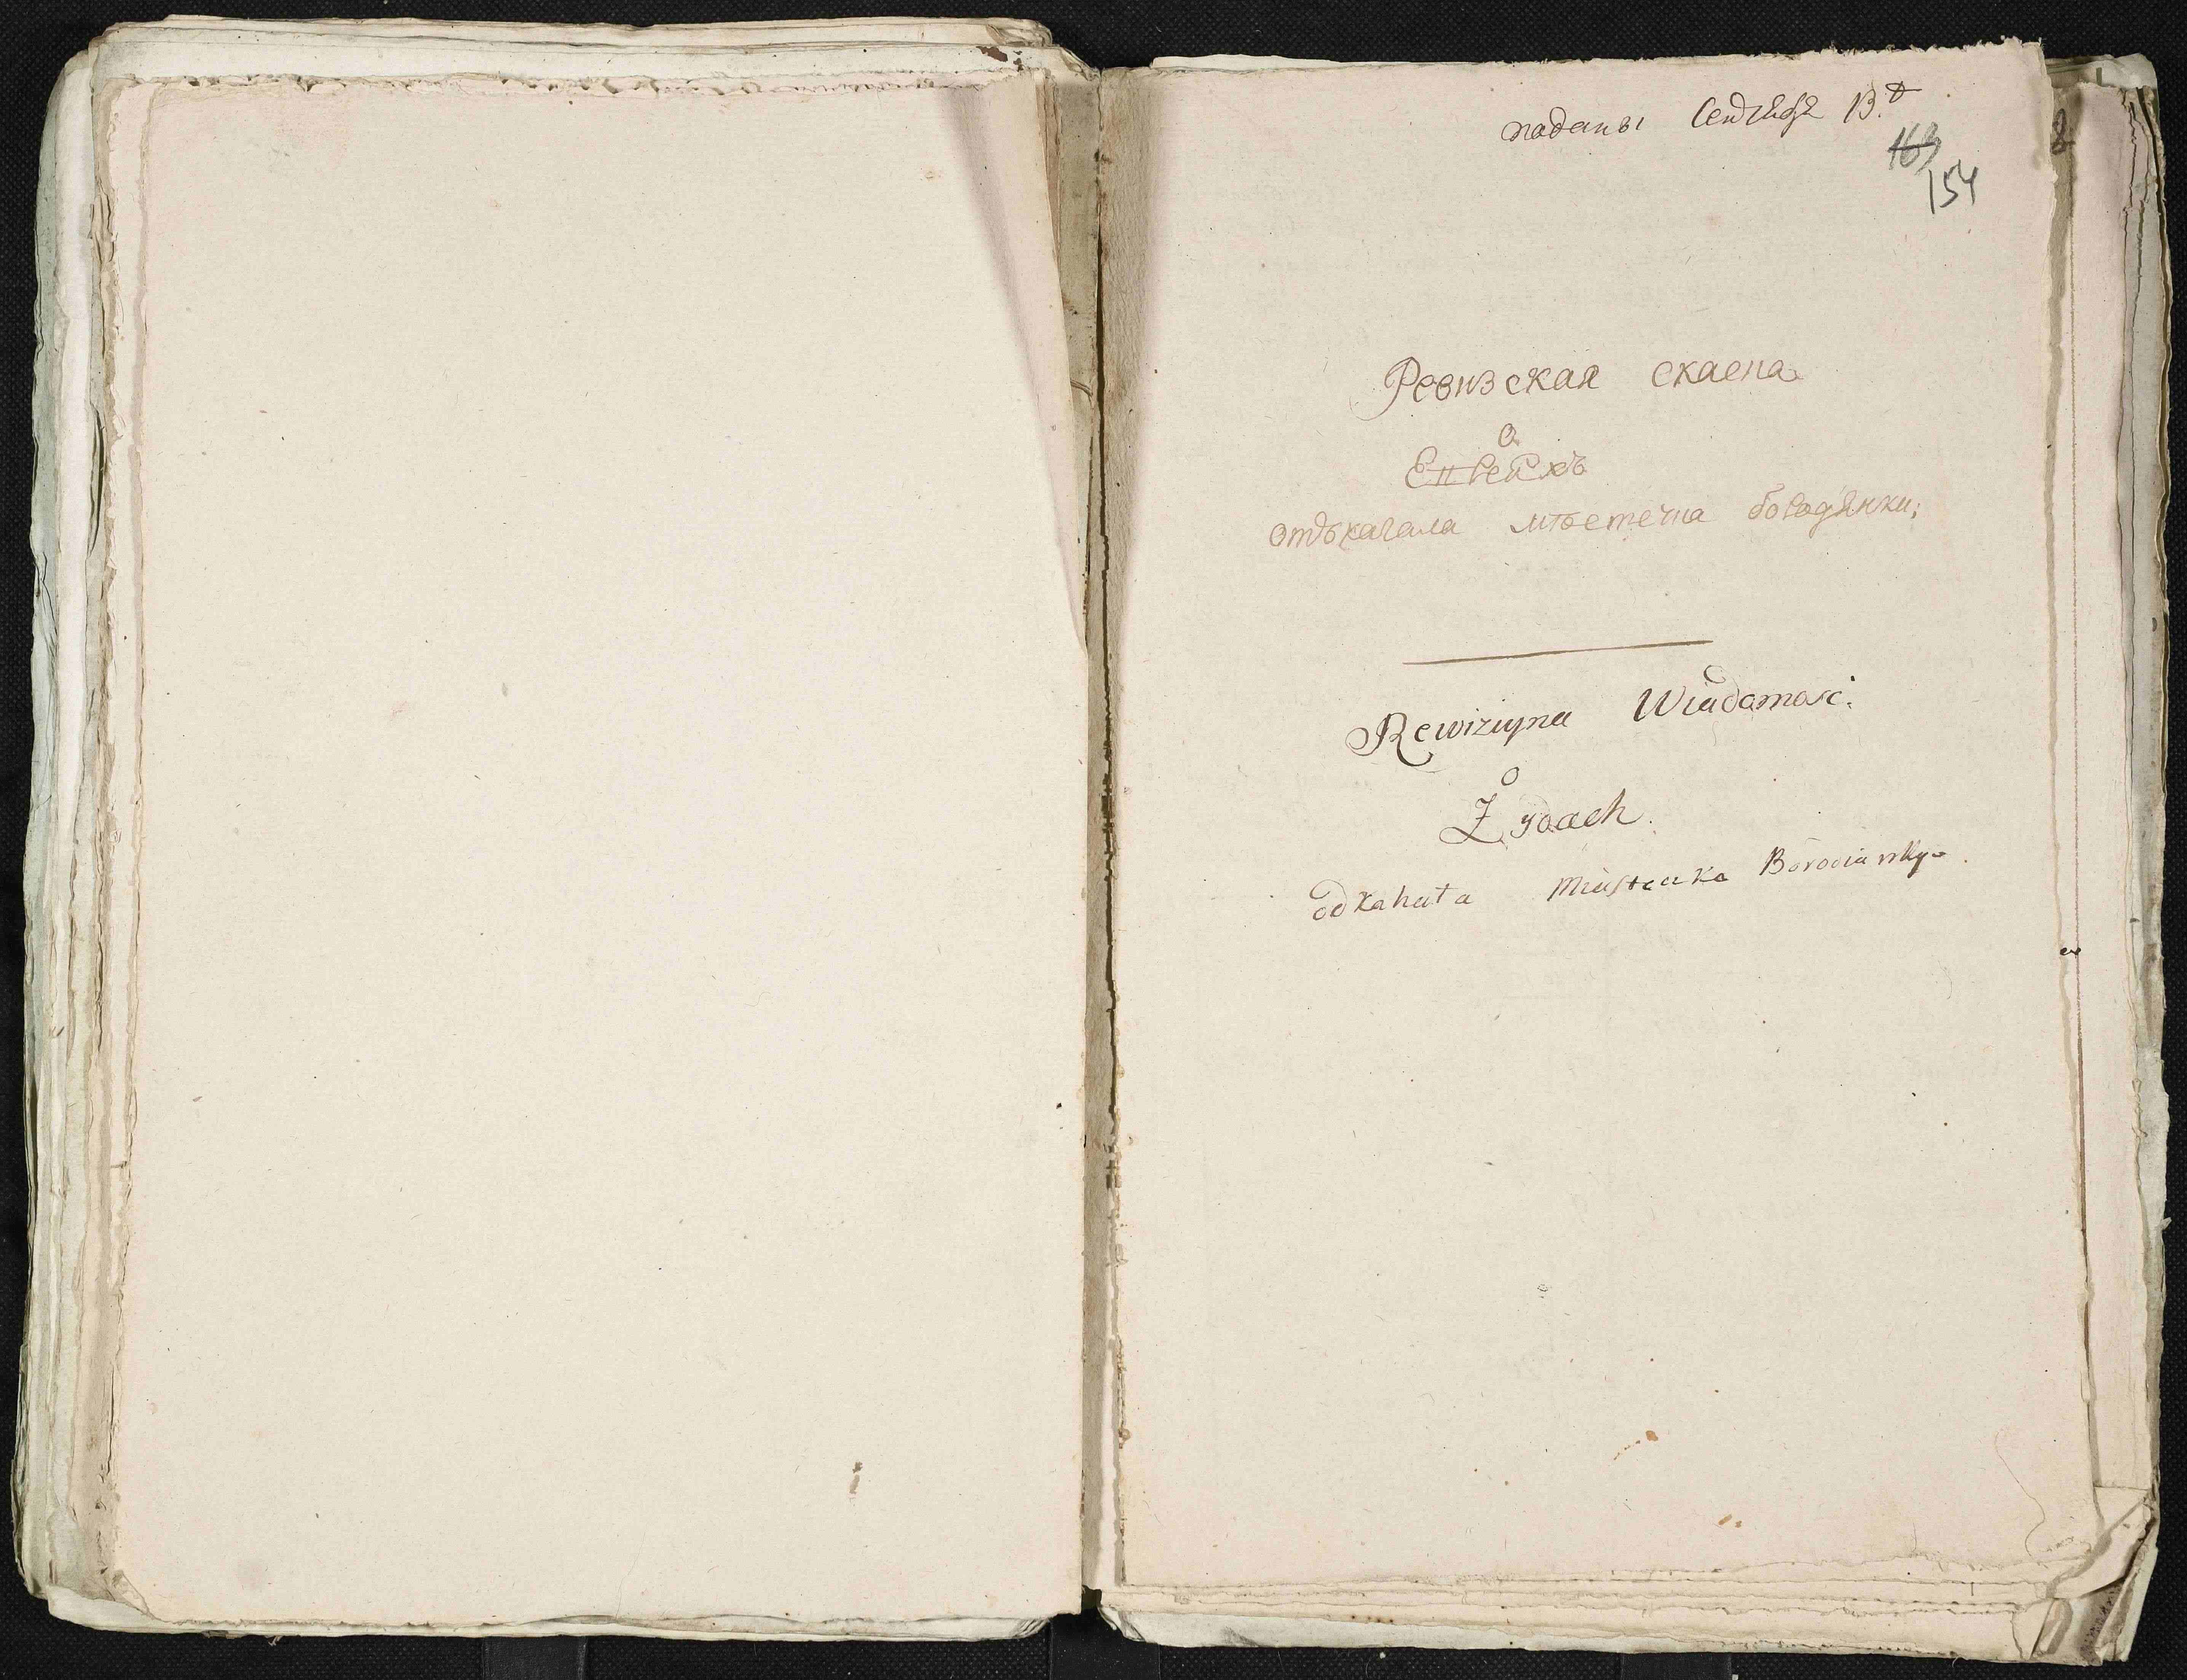 поданы Сентября 13.
163
154
Ревизская скаска
о
Евреяхъ
отъ кагала мѣстечка бородянки;
Rewizuyna Wiadomosc.
o
Żydach.
od Kahała Miasteczka Borodianky